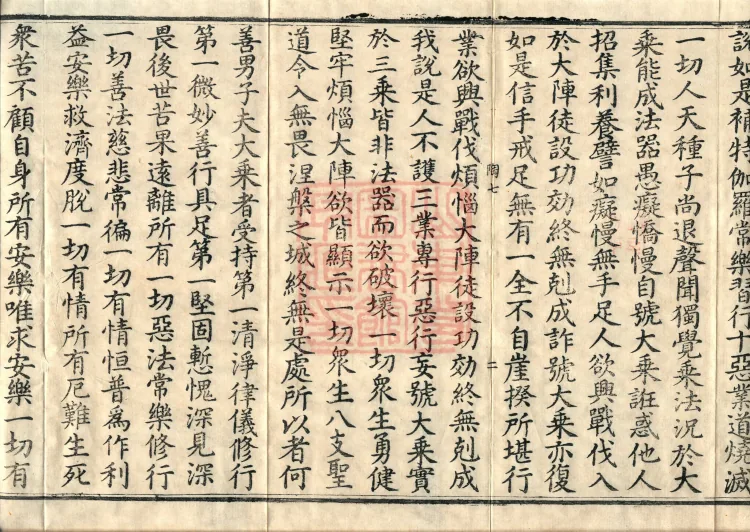 說如是補特伽羅常樂習行十惡業道燒滅
一切人天種子尚退聲聞獨覺乘法況於大
乘能成法器愚癡憍慢自號大乘誑惑他人
招集利養譬如癡慢無手足人欲興戰伐入
於大陣徒設功効終無剋成詐號大乘亦復
如是信手戒足無有一全不自崖揆所堪行
陶七 二
業欲興戰伐煩惱大陣徒設功効終無剋成
我說是人不護三業專行惡行妄號大乘實
於三乘皆非法器而欲破壞一切衆生勇健
堅牢煩惱大陣欲皆顯示一切衆生八支聖
道令入無畏涅槃之城終無是處所以者何
善男子夫大乘者受持第一清淨律儀修行
第一微妙善行具足第一堅固慙愧深見深
畏後世苦果遠離所有一切惡法常樂修行
一切善法慈悲常徧一切有情恒普爲作利
益安樂救濟度脫一切有情所有厄難生死
衆苦不顧自身所有安樂唯求安樂一切有